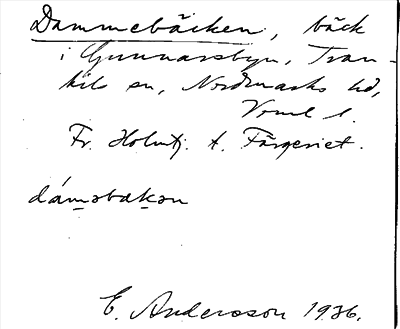 Dammebäcken, bäck
i Gunnarsbyn, Tran-
kils sn, Nordmarks hd,
Vrml l.
Fr. Holmtj. t. Färgeriet.
dámǝbakǝn
E. Andersson 1936.